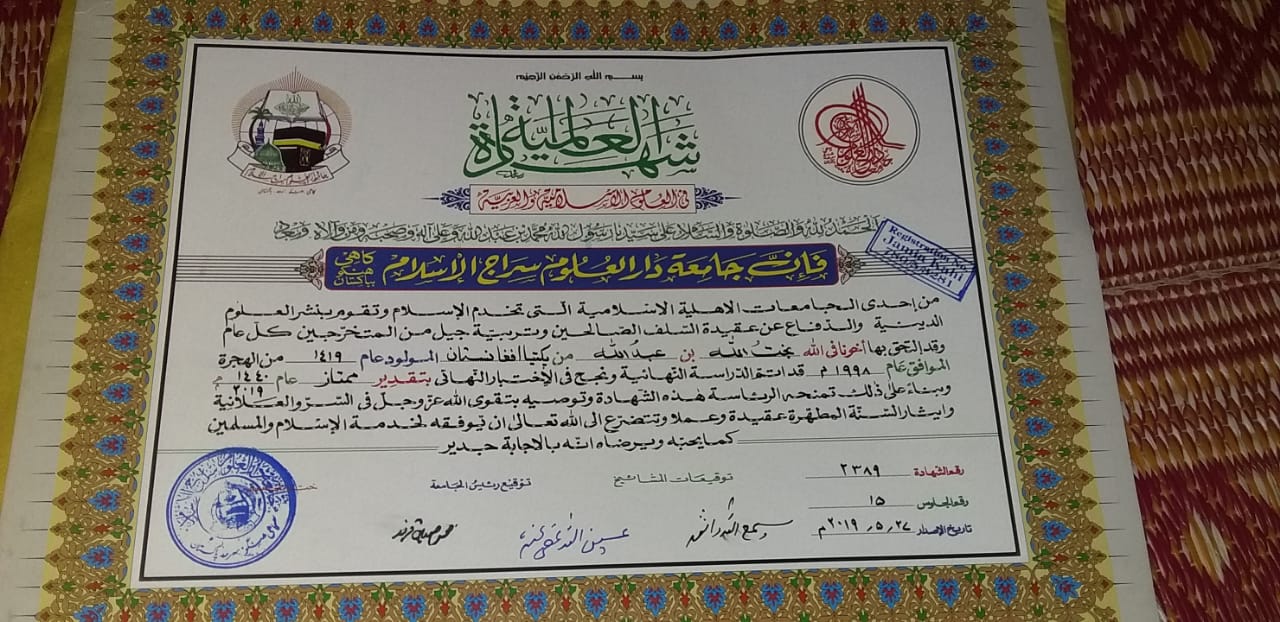 بسم الله الرحمن الرحيم
شهادة العالمية
في العلوم الاسلامية والعربية
الحمد لله والصلوة والسلام على سيدنا رسول الله محمد بن عبد الله وعلى آله وصحبه ومن والاه وبعد
Registration No
فإن جامعة دار العلوم سراج الإسلام كاهي هنگو باكستان
من إحدى الجامعات الاهلية الاسلامية التي تخدم الإسلام وتقوم بنشر العلوم
الدينية والدفاع عن عقيدة السلف الصالحين وتربية جيل من المتخرجين كل عام
وقد التحق بها أخونا في الله بخت الله بن عبد الله من پکتیا افغانستان المولود عام ١٤١٩ من الهجرة
الموافق عام ١٩٩٨ م قد اتم الدراسة النهائية ونجح في الإختبار النهائي بتقدير ممتاز عام ١٤٤٠ ٢٠١٩ م
وبناء على ذلك تمنحه الرئاسة هذه الشهادة وتوصيه بتقوى الله عز وجل في السر والعلانية
وايثار السنة المطهرة عقيدة وعملا وتتضرع الى الله تعالى ان يوفقه لخدمة الإسلام والمسلمين
كما يحبه ويرضاه انه بالاجابة جدير
رقم الشهادة ٢٣٨٩
توقيعات المشائخ
توقيع رئيس الجامعة
رقم الجلوس ١٥
تاريخ الإصدار ٢٠١٩/٥/٢٧م